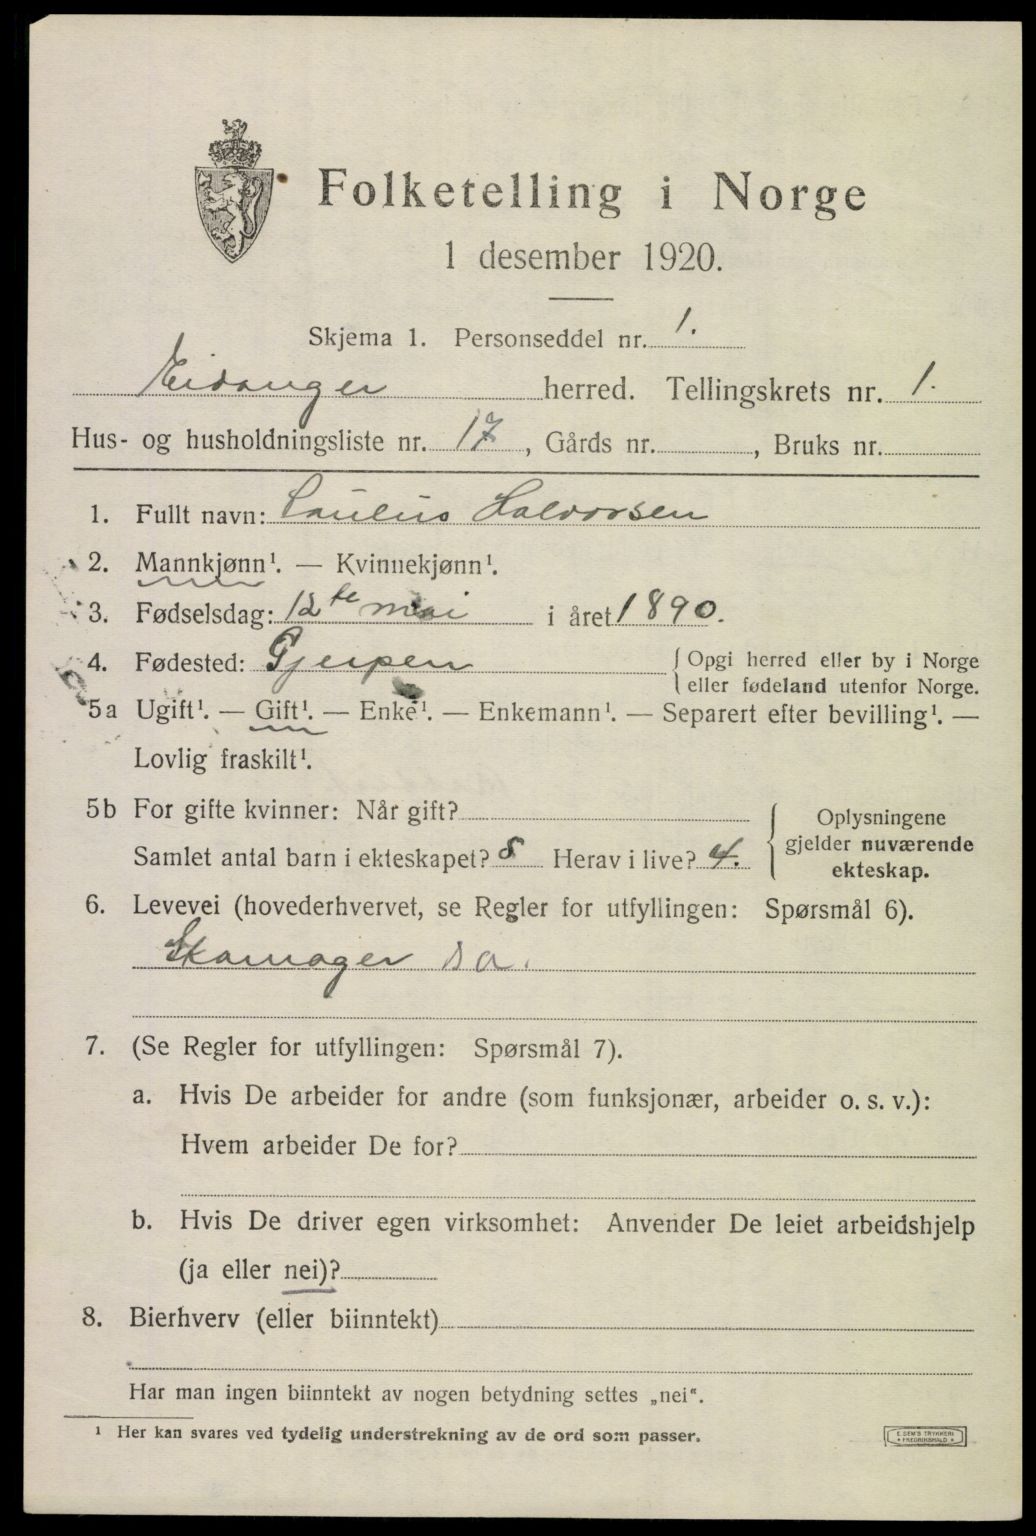 Folketelling i Norge
1 desember 1920.
Skjema 1. Personseddel nr. 1.
Eidanger herred. Tellingskrets nr. 1.
Hus- og husholdningsliste nr. 17, Gårds nr. , Bruks nr.
1. Fullt navn: Paulus Halvorsen
2. Mannkjønn¹. — Kvinnekjønn¹.
3. Fødselsdag: 12te mai i året 1890.
4. Fødested: Gjerpen { Opgi herred eller by i Norge
eller fødeland utenfor Norge.
5a Ugift¹. — Gift¹. — Enke¹. — Enkemann¹. — Separert efter bevilling¹. —
Lovlig fraskilt¹.
5b For gifte kvinner: Når gift?
Samlet antal barn i ekteskapet? 8 Herav i live? 4.
{ Oplysningene
gjelder nuværende
ekteskap.
6. Levevei (hovederhvervet, se Regler for utfyllingen: Spørsmål 6).
Skomager s a.
7. (Se Regler for utfyllingen: Spørsmål 7).
a. Hvis De arbeider for andre (som funksjonær, arbeider o. s. v.):
Hvem arbeider De for?
b. Hvis De driver egen virksomhet: Anvender De leiet arbeidshjelp
(ja eller nei)?
8. Bierhverv (eller biinntekt)
Har man ingen biinntekt av nogen betydning settes „nei“.
¹ Her kan svares ved tydelig understrekning av de ord som passer.
E. SEM'S TRYKKERI
FREDRIKSHALD